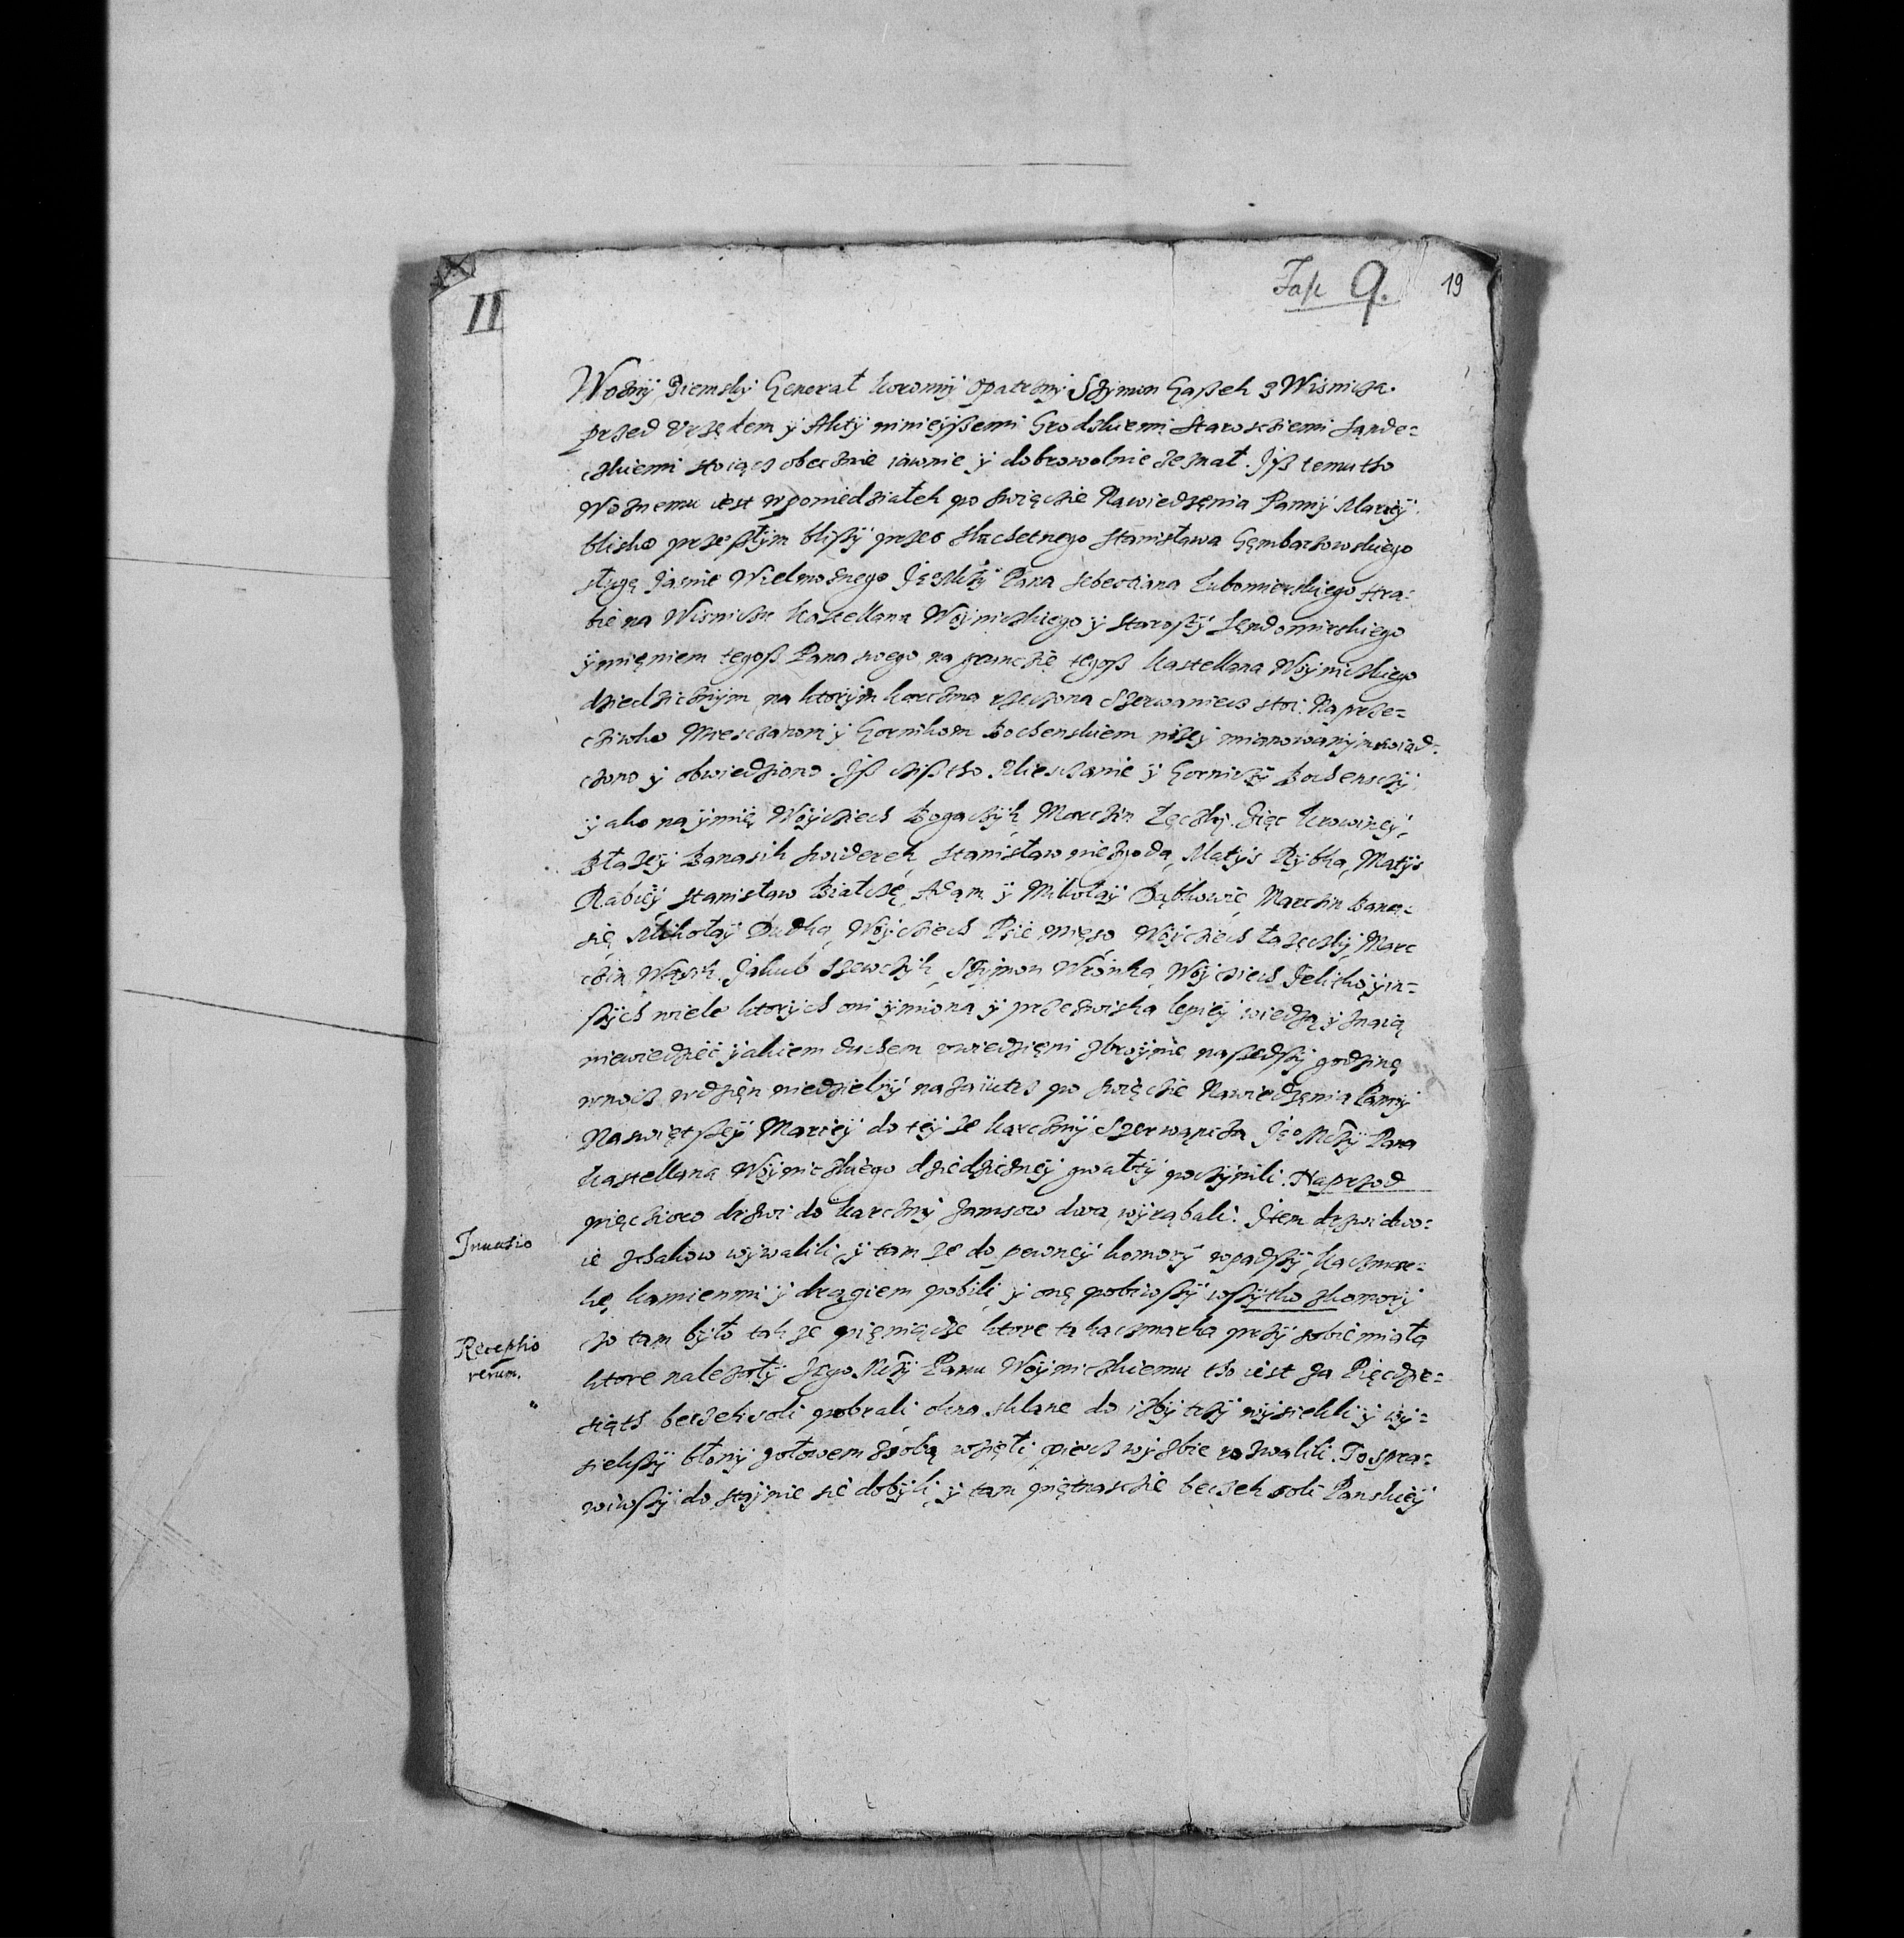 II
Fasc 9.
19
Wozny Ziemsky Generał koronny opatrzny Szymon Gaszek z Wisnicza.
przed Vrzędem y Akty ninieyszemi Grodzkiemi Staroscziemi Sande=
czkiemi stoiącz obecznie iawnie y dobrowolnie zeznał. Jsz temu tho
Woznemu iest w poniedziałek po swięczie Nawiedzęnia Panny Mariey
blisko przeszłym bliszy przez slachetnego Stanisława Gęmbarzowskiego
sługę Jasnie Wielmoznego Je° Mczy Pana Sebestiana Lubomierskiego Hra=
bie na Wisniczu Kastellana Woynickiego y Starosty Sędomirskiego
ymięniem tegosz Pana swego na grunczie tegosz Kastellana Woynickiego
dziedzicznym na ktorym karczma rzeczona Szerwaniecz stoi. Naprze=
cziwko Miesczanom y Gornikom Bochenskiem nizey mianowanym swiad=
czono y obwiedziono. Jsz czisztho Miesczanie y Gorniczy Bochensczy
yako na ymię Woyciech Bogaczyk, Marczin Lęczky. Jięc Krowincy,
Błazey Banasik Swiderek, Stanisław niezgoda, Matys Rybka, Matys
Rabiey, Stanisław Białczę, Adam y Mikołay Dąbkowic, Marczin Bana=
się, Mikołay Dudka, Woyciech Psie mięso, Woyciech Łazęczky, Mar=
czin Wąsik. Jakub Szewczyk, Szymon Wronka, Woyciech Jelitko y in=
szych wiele ktorych oni ymiona y przezwiska lepiey wiedzą y znaią
niewiedziec yakiem duchem zwiedzięni zbroynie naszedszy godzinę
wnocz w dzięn niedzielny nazaiutrz po swięczie Nawiedzęnia Panny
Naswiętszey Mariey do tey ze karczmy Szerwańcza Je° Mczy Pana
Kastellana Woynickiego dziedziczney gwałty poczynili. Naprzod
pięczioro drzwi do karczmy zamsow dwa wyrąbali. Jtem drzwi dwo=
ie zhakow wywalili, y tam ze do pewney komory wpadszy, kaczmar=
kę kamienmi y drągiem pobili y onę pobiwszy wszytko zkomory
czo tam było tak ze pięniądze ktore ta kaczmarka przy sobie miała
ktore nalezały Jego Mczy Panu Woynickiemu tho iest za Pięcdzie=
siąth beczek soli pobrali okna sklane do izby trzy wysiekli y wy=
siekszy błony z ołowem zsobą wzięli piecz w yzbie rozwalili. To spra=
wiwszy do staynie się dobyli y tam piętnasczie beczek soli Panskiey
Inuasio
Receptio
rerum.